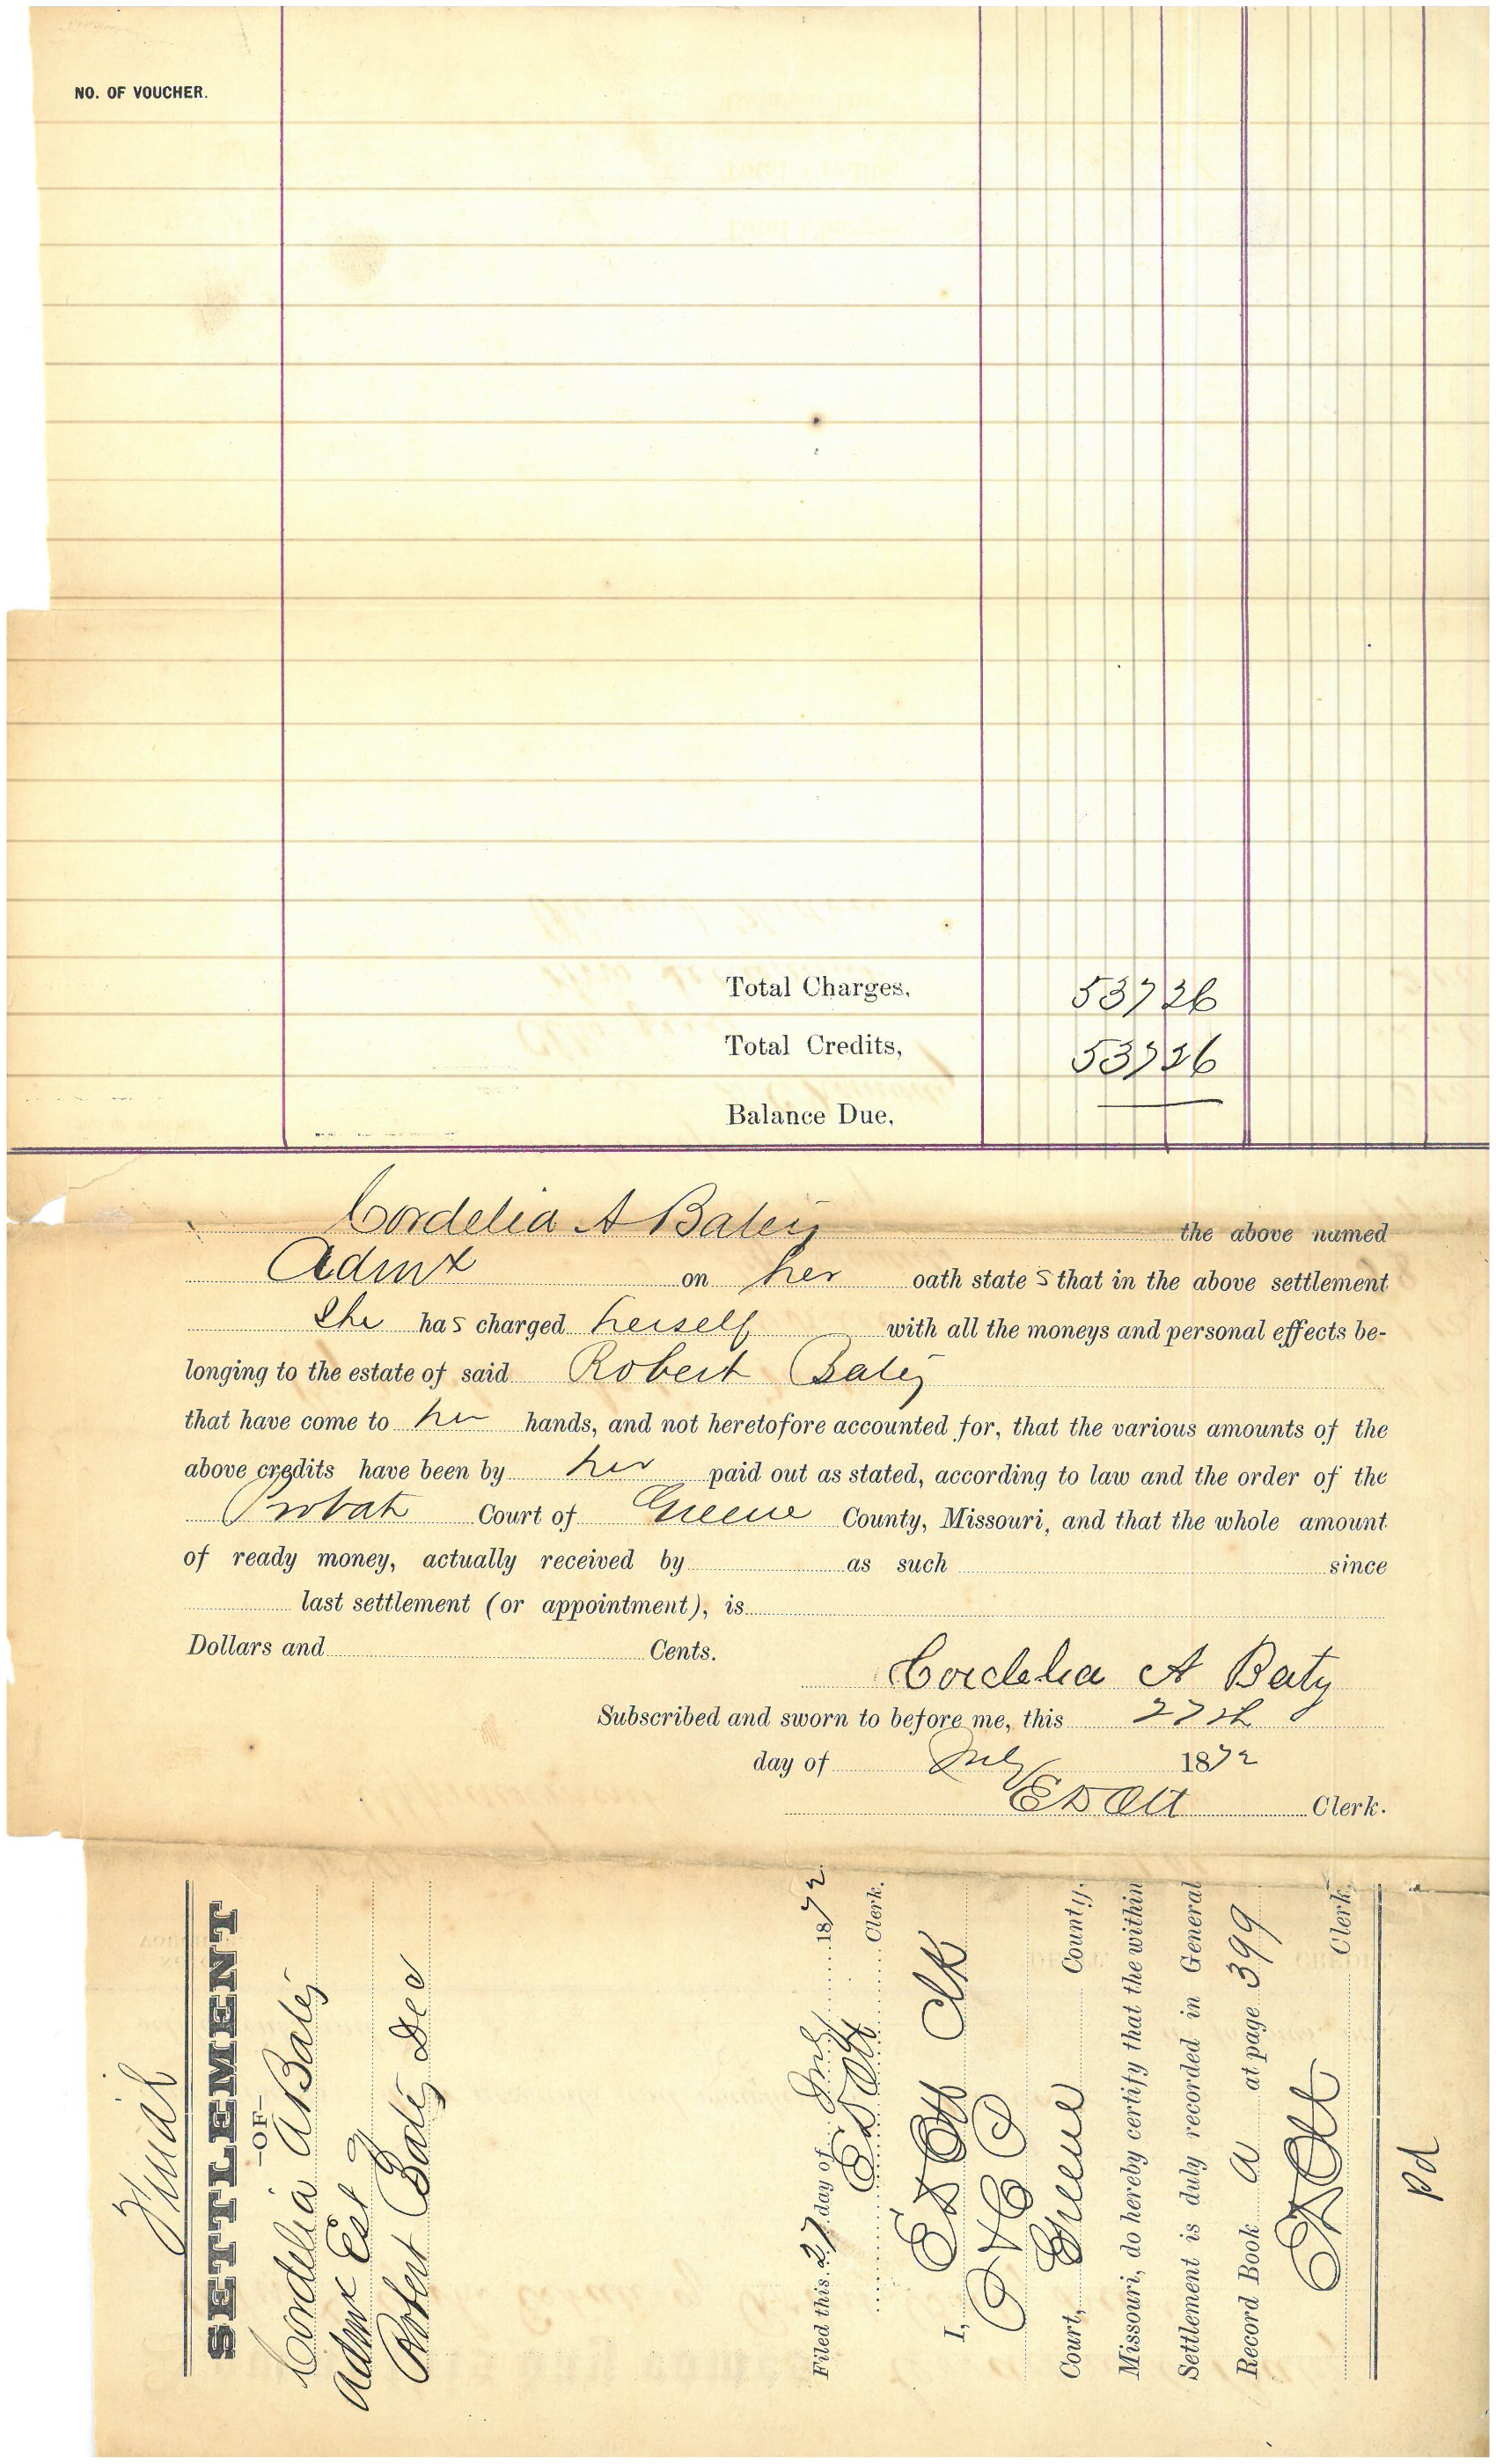 NO. OF VOUCHER.
Total Charges, 537 26
Total Credits, 537 26
Balance Due,
Cordelia A Batey the above named
Admx on her oath states that in the above settlement
She has charged herself with all the moneys and personal effects be-
longing to the estate of said Robert Batey
that have come to her hands, and not heretofore accounted for, that the various amounts of the
above credits have been by her paid out as stated, according to law and the order of the
Probate Court of Greene County, Missouri, and that the whole amount
of ready money, actually received by as such since
last settlement (or appointment), is
Dollars and Cents.
Cordelia A Baty
Subscribed and sworn to before me, this 27th
day of July 1872
E D Ott Clerk.
Final
SETTLEMENT
—OF—
Cordelia A Batey
Admx Est
Robert Batey Dec
Filed this 27 day of July 1872.
E D Ott Clerk.
I, E D Ott Clk
P & C C
Court, Greene County,
Missouri, do hereby certify that the within
Settlement is duly recorded in General
Record Book A at page 399
E D Ott
Clerk.
Pd